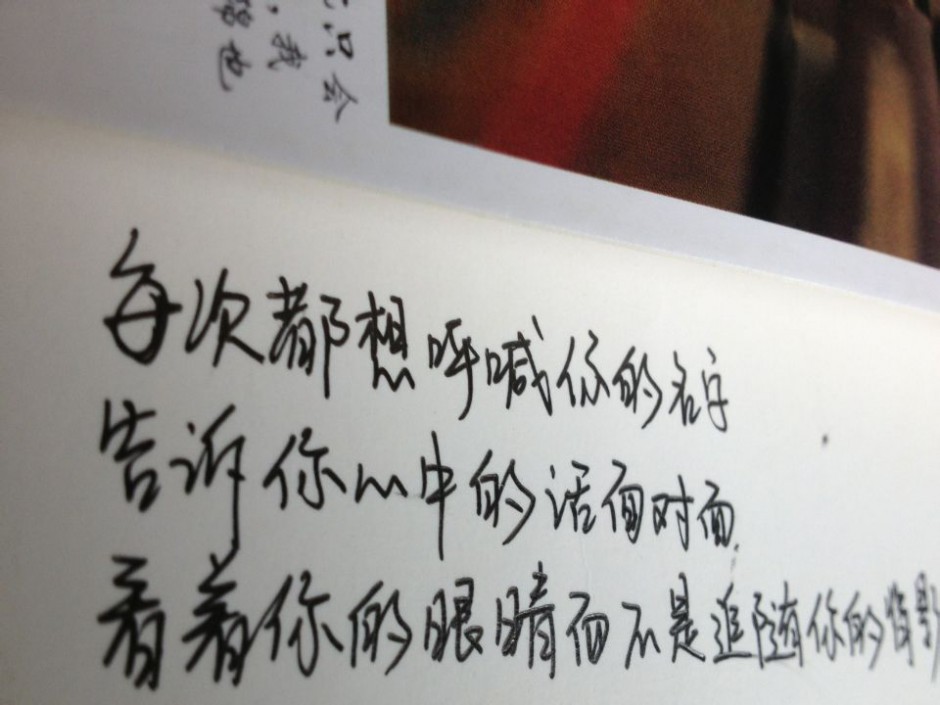 只会
，我
也
每次都想呼喊你的名字
告诉你心中的话面对面
看着你的眼睛而不是追随你的背影